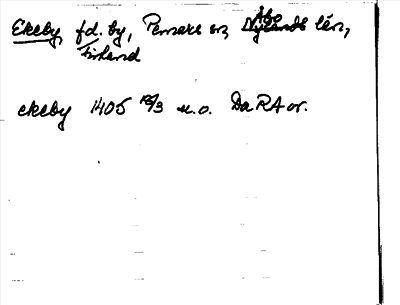 Ekeby, fd. by, Pernars sn, Åbo Nylands län,
Finland
ekeby 1405 12/3 u.o. Da RA or.